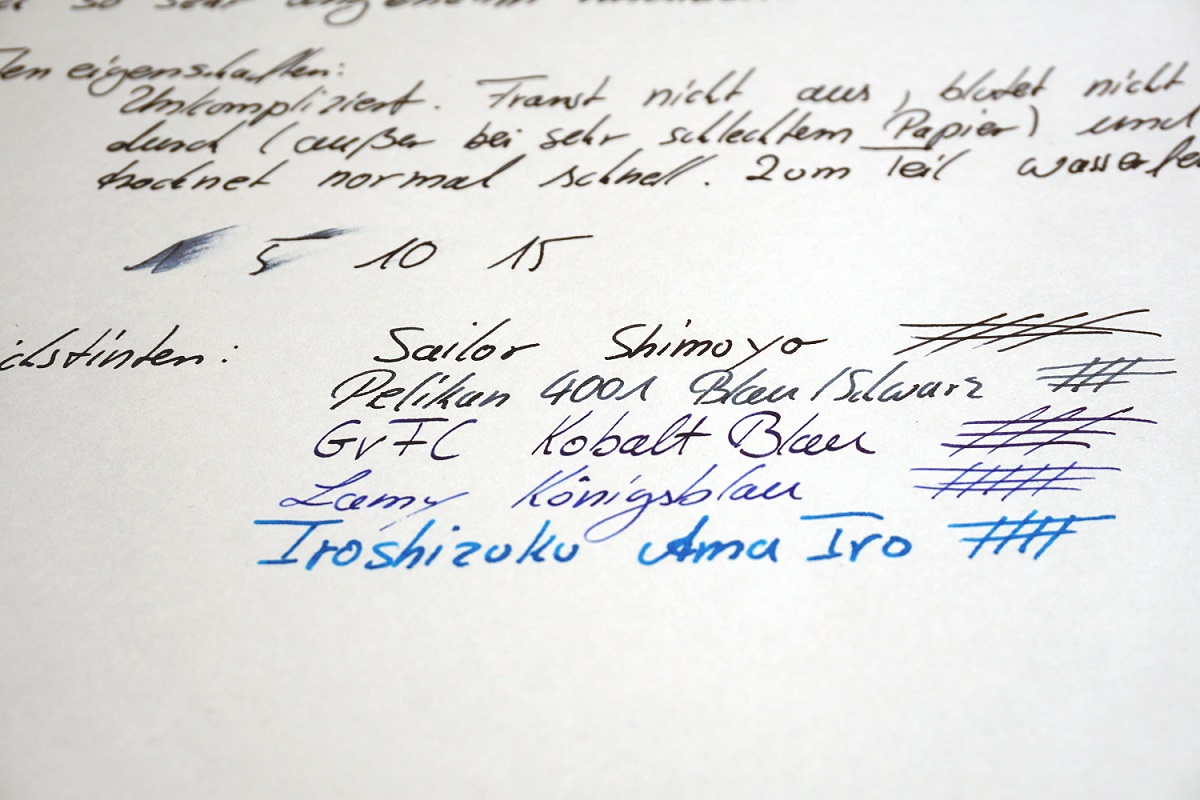 so sehr angenehm
eigenschaften:
Unkompliziert. Franst nicht aus, blutet nicht
durch (außer bei sehr schlechtem Papier) und
trocknet normal schnell. Zum Teil wasserfe
1 5 10 15
ichstinten: Sailor Shimoyo
Pelikan 4001 Blau/Schwarz
GvFC Kobalt Blau
Lamy Königsblau
Iroshizuku Ama Iro